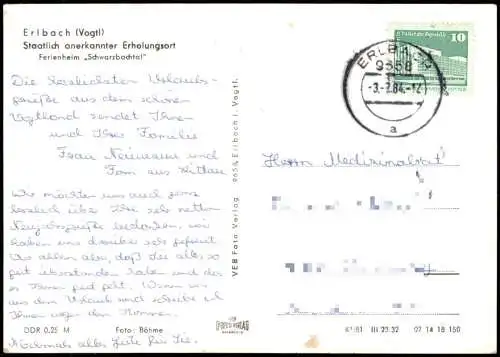 Erlbach (Vogtl)
Staatlich anerkannter Erholungsort
Ferienheim „Schwarzbachtal"
Die herzlichsten Urlaubs-
grüße aus dem schönen
Vogtland sendet Ihnen
und Ihrer Familie
Frau Neumann und
Fam. aus Zittau
Wir möchten uns auch ganz
herzlich über Ihre sehr netten
Neujahrsgrüße bedanken, wir
haben uns darüber sehr gefreut.
Vor allen aber, daß Sie alles so
gut überstanden haben und daß
es Ihnen gut geht. Wenn wir
aus dem Urlaub sind schreibe ich
Ihnen wegen dem
Nochmals alles Gute für Sie.
DDR 0,25 M
Foto: Böhme
VEB Foto-Verlag 9654 Erlbach i. Vogtl.
10
ERLBACH
9658
-3.-7.84.-12
a
Herrn Medizinalrat
III 22/32 07 14 18 150